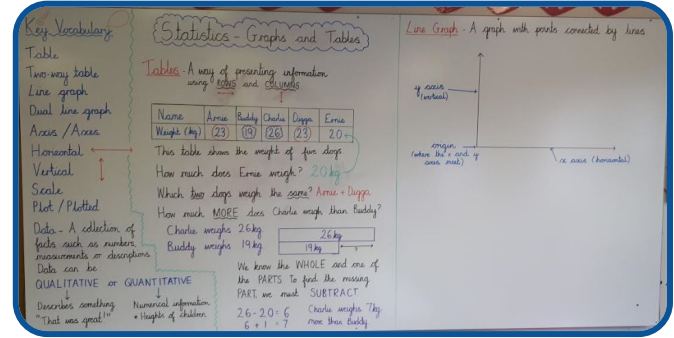 Key Vocabulary
Table
Two-way table
Line graph
Dual line graph
Axis / Axes
Horizontal
Vertical
Scale
Plot / Plotted
Data - A collection of
facts such as numbers,
measurements or descriptions.
Data can be
QUALITATIVE or QUANTITATIVE
Describes something
"That was great!"
Numerical information
+ Heights of children
Statistics - Graphs and Tables
Tables - A way of presenting information
using ROWS and COLUMNS
Name Arnie Buddy Charlie Digga Ernie
Weight (kg) 23 19 26 23 20
This table shows the weight of five dogs
How much does Ernie weigh? 20kg
Which two dogs weigh the same? Arnie + Digga
How much MORE does Charlie weigh than Buddy?
Charlie weighs 26kg
Buddy weighs 19kg
26kg
19kg ?
We know the WHOLE and one of
the PARTS. To find the missing
PART, we must SUBTRACT
26-20=6
6+1=7
Charlie weighs 7kg
more than Buddy.
Line Graph - A graph with points connected by lines
y axis
(vertical)
origin
(where the x and y
axis meet)
x axis (horizontal)